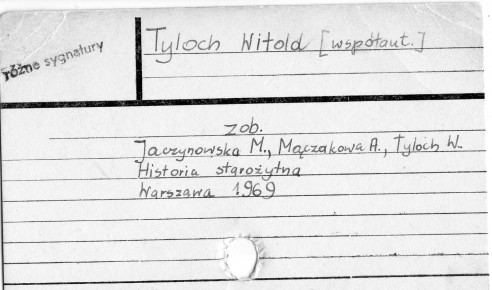 Tyloch Witold [współaut.]
różne sygnatury
zob.
Jaczynowska M., Mączakowa A., Tyloch W.
Historia starożytna
Warszawa 1969